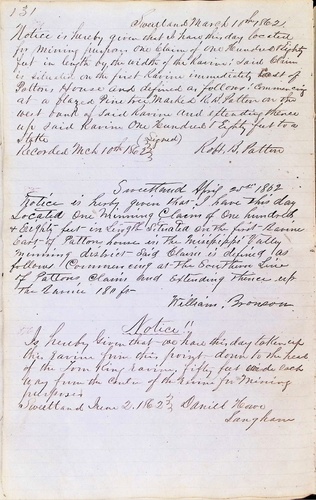 131
Sweetland March 10th 1862
Notice is hereby given that I have this day located
for mining purposes One Claim of One Hundred & Eighty
feet in length by the width of the Ravine: Said Claim
is situated on the first Ravine immediately East of
Pattons House and defined as follows: Commencing
at a blazed Pine tree Marked R. S. Patton on the
west bank of said Ravine and extending thence
up Said Ravine One Hundred & Eighty feet to a
Stake (Signed)
Recorded Mch 10th 1862 Robt. S. Patton
Sweetland April 25th 1862
Notice is herby given that I have this day
Located One Minning Claim of One hundredth
& Eighty feet in Length Situated on the first Ravine
East of Pattons house in the Missippi Vally
Minning district Said Claim is defined as
follows Commencing at the Southern Line
of Pattons Claim and Extending thince up
the Ravine 180 ft
William, Bronson
Notice!!
Is hereby Given that we have this day taken up
this ravine from this point down to the head
of the Tom Ling ravine, fifty feet wide each
way from the center of the Ravine for Mining
purposes
Sweetland June 2. 1862 Daniel Howe
Langham